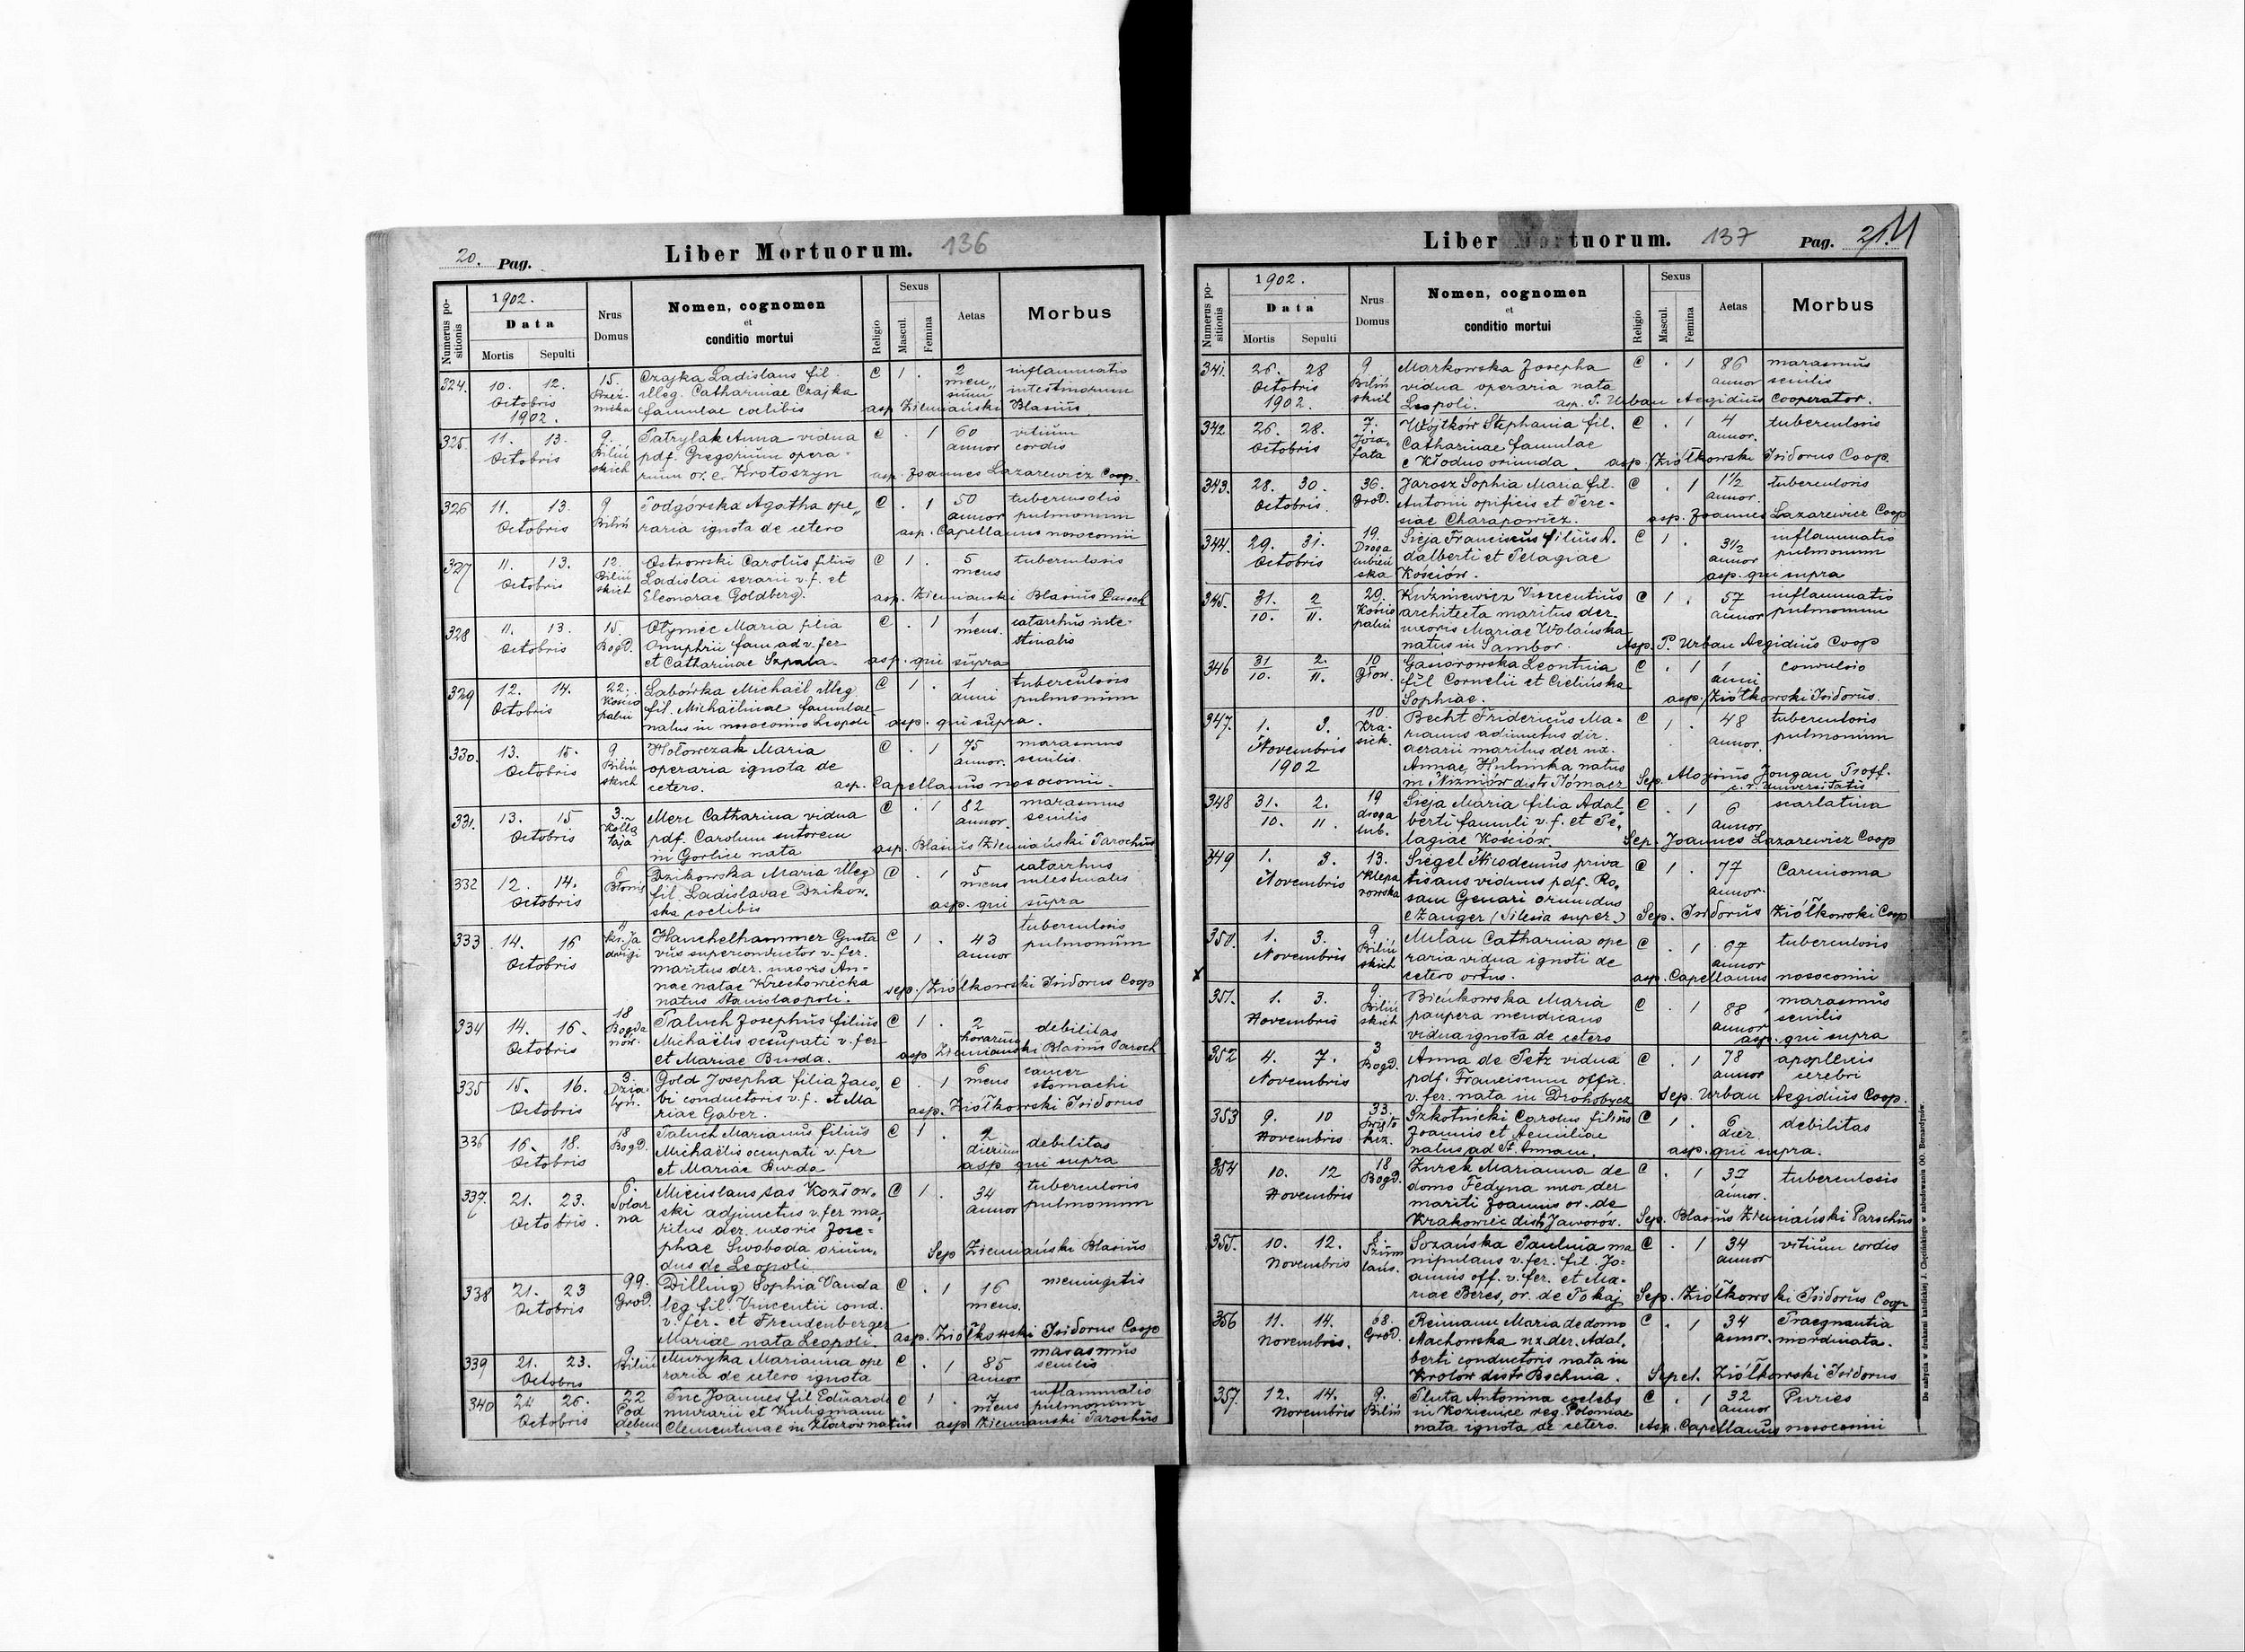 20. Pag. Liber Mortuorum. 136
Numerus positionis
1902.
Data
Mortis Sepulti
Nrus Domus
Nomen, cognomen
et
conditio mortui
Religio
Sexus
Mascul. Femina
Aetas
Morbus
324. 10. 12. 15. Czajka Ladislaus fil. C 1 . 2 inflammatio
Octobris illeg. Catharinae Czajka mensium intestinorum
1902. famulae coelibis asp Ziemiański Blasius
325 11. 13. 9. Patrylak Anna vidua C . 1 60 vitium
Octobris Biliń pdf. Gregorium opera- annor cordis
skich rium or. e. Krotoszyn asp. Joannes Lazarewicz Coop.
326 11. 13. 9 Podgórska Agatha ope„ C . 1 50 tuberculosis
Octobris Biliń raria ignota de cetero annor pulmonum
asp. Capellanus nosocomii
327 11. 13. 12. Ostrowski Carolus filius C 1 . 5 tuberculosis
Octobris Biliń Ladislai serarii v. f. et mens
skich Eleonorae Goldberg. asp. Ziemianski Blasius Paroch
328 11. 13. 15. Olymec Maria filia C . 1 1 catarrhus inte-
Octobris Bogd. Onuphrii fam ad v. fer mens. stinalis
et Catharinae Szpala. asp. qui supra
329 12. 14. 22. Labówka Michaël illeg C 1 . 1 tuberculosis
Octobris Kościo fil. Michaëlinae famulae anni pulmonum
palni natus in nosocomio Leopoli asp. qui supra.
330. 13. 15. 9. Hołowczak Maria C . 1 75 marasmus
Octobris Biliń operaria ignota de annor. senilis
skich cetero. asp. Capellanus nosocomii.
331. 13. 15 3. Merc Catharina vidua C . 1 82 marasmus
Octobris Kołłą pdf. Carolum sutorem annor. senilis
taja in Gorlice nata asp. Blasius Ziemiański Parochus
332 12. 14. 6 Dzikowska Maria illeg C . 1 5 catarrhus
Octobris Błonie fil. Ladislavae Dzikow- mens intestinalis
ska coelibis asp. qui supra
333. 14. 16 Hanchelhammer Gusta C 1 . 43 tuberculosis
Octobris vus superconductor v. fer. annor pulmonum
maritus der. uxoris An-
nae natae Krechowiecka
natus Stanislaopoli. sep. Ziółkowski Isidorus Coop
334 14. 16. 18 Paluch Josephus filius C 1 . 2 debilitas
Octobris Bogda Michaëlis occupati v. fer horarum
now. et Mariae Burda. asp Ziemiański Blasius Paroch
335 15. 16. 3. Gold Josepha filia Jaco„ C . 1 6 cancer
Octobris Dzia bi conductoris v. f. et Ma mens stomachi
łyń. riae Gaber. asp. Ziółkowski Isidorus
336 16. 18. 18 Paluch Marianus filius C 1 . 2 debilitas
Octobris Bogd. Michaëlis occupati v. fer dierum
et Mariae Burda asp qui supra
337. 21. 23. 6. Miecislaus sas Kozłow- C 1 . 34 tuberculosis
Octobris. Solar ski adjunctus v. fer ma annor pulmonum
na ritus der. uxoris Jose-
phae Swoboda oriun„
dus de Leopoli. Sep Ziemiański Blasius
338 21. 23 99. Dilling Sophia Vanda C . 1 16 meningitis
Octobris Grod. leg fil. Vincentii cond. mens.
v. fer. et Freudenberger
Mariae nata Leopoli. asp. Ziółkowski Isidorus Coop
339 21. 23. 9. Muzyka Marianna ope C . 1 85 marasmus
Octobris Biliń raria de cetero ignota annor senilis
340 24 26. 22 Joannes fil Eduardi C 1 . 7 inflammatio
Octobris Pod murarii et Kuligmann mens pulmonum
dębem Clementinae in Złoczów natus asp Ziemianski Parochus
Liber Mortuorum. 137 Pag. 21.
Numerus positionis
1902.
Data
Mortis Sepulti
Nrus Domus
Nomen, cognomen
et
conditio mortui
Religio
Sexus
Mascul. Femina
Aetas
Morbus
341. 26. 28 9. Markowska Josepha C . 1 86 marasmus
Octobris Biliń vidua operaria nata annor senilis
1902. skich Leopoli. asp. P. Urban Aegidius Cooperator.
342 26. 28. 7. Wójtków Stephania fil. C . 1 4 tuberculosis
Octobris Joza Catharinae famulae annor.
fata e Kłodno oriunda. asp. Ziółkowski Isidorus Coop.
343. 28. 30. 36. Jarosz Sophia Maria fil. C . 1 1½ tuberculosis
Octobris. Grod. Antonii opificis et Tere- annor.
siae Charapowicz. asp. Joannes Lazarewicz Coop
344. 29. 31. 19. Sieja Franciscus filius A. C 1 . 3½ inflammatio
Octobris Droga dalberti et Pelagiae annor pulmonum
lubień
ska Kościów. asp. qui supra
345. 31. 2 29. Kuźniewicz Vincentius C 1 . 57 inflammatio
10. 11. Kościo architecta maritus der. annor pulmonum
palni uxoris Mariae Wolańska
natus in Sambor. Asp. P. Urban Aegidius Coop
346 31 2. 10 Gasiorowska Leontina C . 1 1 convulsio
10. 11. Głow. fil Cornelii et Cielińska anni
Sophiae. asp. Ziółkowski Isidorus.
347. 1. 3. 10. Becht Fridericus Ma- C 1 . 48 tuberculosis
Novembris Kra- rianus adiunctus dir. annor. pulmonum
1902 sick. aerarii maritus der ux.
Annae Hulmka natus
in Niżniów distr Tłómacz Sep. Aloysius Jougan Proff.
c. r. universitatis
348 31. 2. 19 Sieja Maria filia Adal C . 1 6 scarlatina
10. 11. droga berti famuli v. f. et Pe. annor
lub. lagiae Kościów. Sep. Joannes Lazarewicz Coop
349 1. 3. 13. Siegel Nicodemus priva C 1 . 77 Carcinoma
Novembris Klepa tisans viduus pdf. Ro, annor.
rowska sam Genari oriundus
e Zanger (Silesia super.) Sep. Isidorus Ziółkowski Coop
350. 1. 3. 9. Milan Catharina ope C . 1 67 tuberculosis
Novembris Biliń raria vidua ignoti de annor
skich cetero ortus. asp. Capellanus nosocomii
x
351. 1. 3. 9. Bieńkowska Maria C . 1 88 marasmus
Novembris Biliń paupera mendicans annor senilis
skich vidua ignota de cetero asp. qui supra
352 4. 7. 3 Anna de Petz vidua C . 1 78 apoplexis
Novembris Bogd. pdf. Franciscum offic. annor cerebri
v. fer. nata in Drohobycz Sep. Urban Aegidius Coop.
353 9. 10 33. Szkotnicki Carolus filius C 1 . 6 debilitas
Novembris Święto Joannis et Aemiliae dier.
krz. natus ad St. Annam. asp. qui supra.
354 10. 12 18 Zurek Marianna de C . 1 37 tuberculosis
Novembris Bogd. domo Fedyna uxor der annor.
mariti Joannis or. de
Krakowiec distr Jaworów. Sep. Blasius Ziemiański Parochus
355. 10. 12. 8. Sozańska Paulina ma C . 1 34 vitium cordis
Novembris Szum nipulans v. fer. fil. Jo- annor
lańs. annis off. v. fer. et Ma-
riae Béres, or. de Tokaj Sep. Ziółkowski Isidorus Coop
356 11. 14. 68. Reimann Maria de domo C . 1 34 Praegnantia
Novembris. Grod. Machowska ux. der. Adal. annor. inordinata.
berti conductoris nata in
Królów distr Bochnia. Sepel. Ziółkowski Isidorus
357. 12. 14. 9. Pluta Antonina coelebs C . 1 32 Puries
Novembris Biliń in Kozienice reg. Poloniae annor
nata ignota de cetero. Asp. Capellanus nosocomii
Do nabycia w drukarni katolickiej J. Chęcińskiego w zabudowaniu OO. Bernardynów.